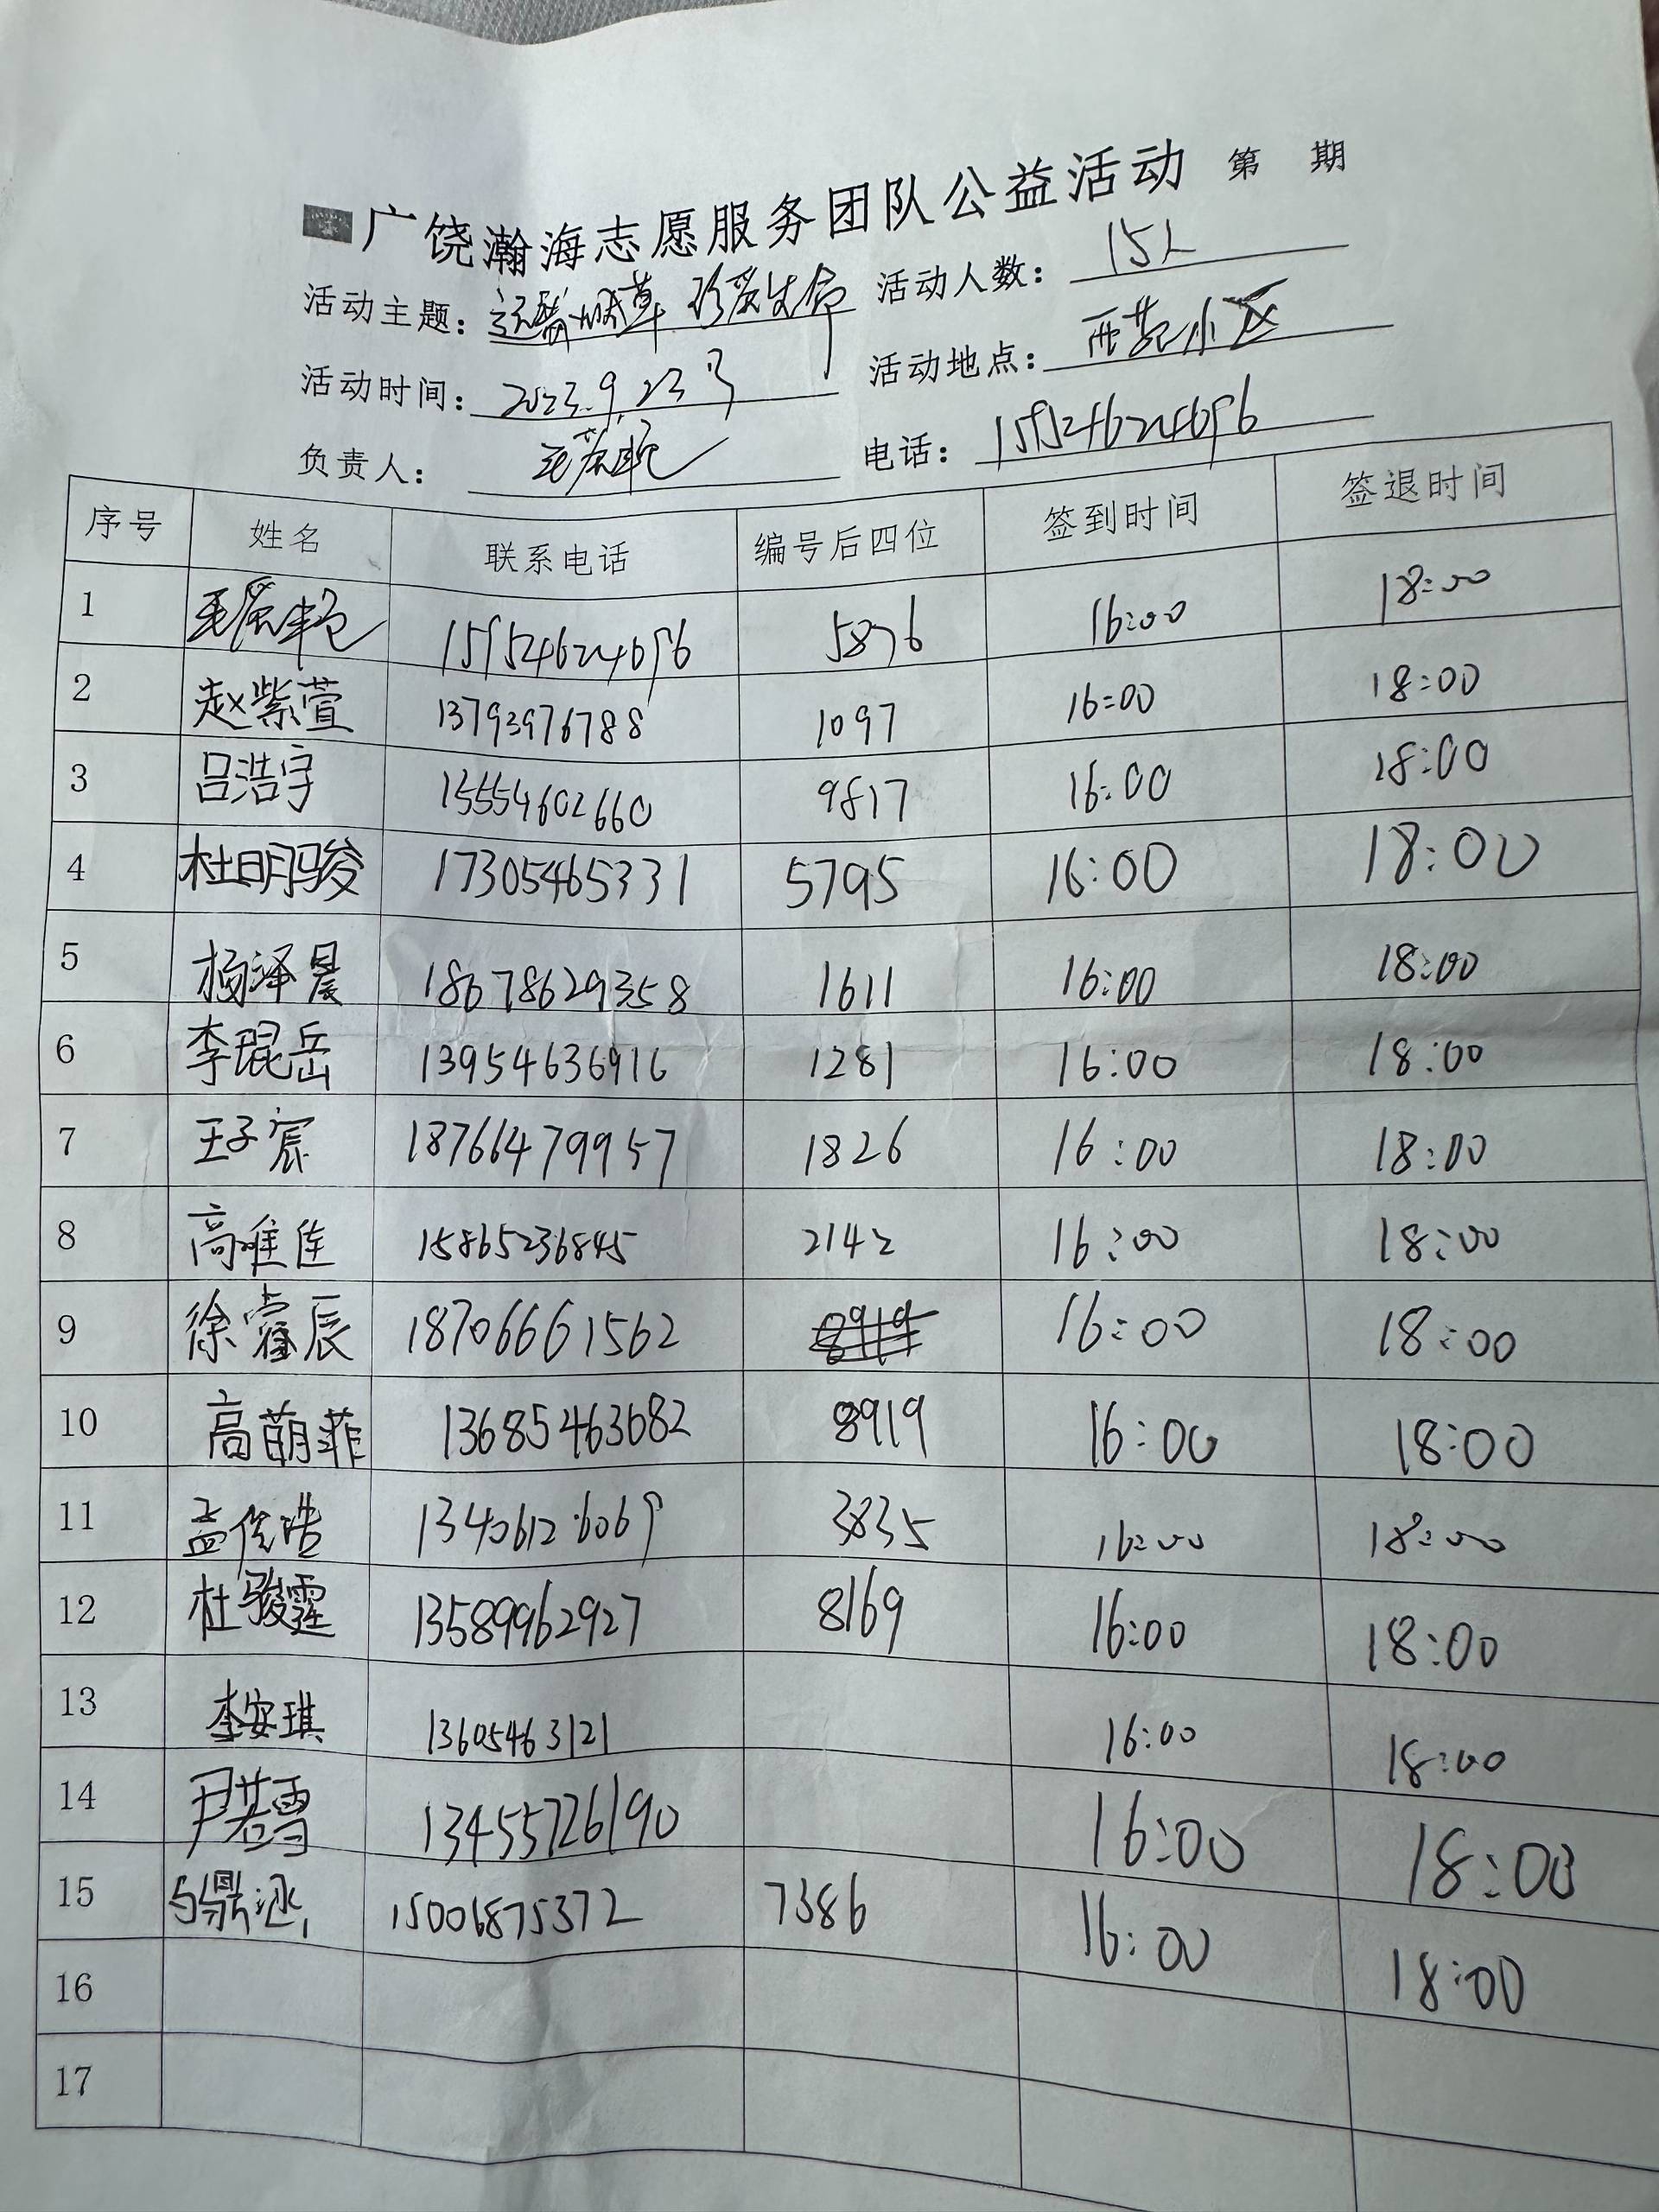 广饶瀚海志愿服务团队公益活动 第 期
活动主题: 远离烟草 珍爱生命 活动人数: 15人
活动时间: 2023.9.23号 活动地点: 西苑小区
负责人: 电话: 159524624696
序号 姓名 联系电话 编号后四位 签到时间 签退时间
1 159524624696 5876 16:00 18:00
2 赵紫萱 13793976788 1097 16:00 18:00
3 吕浩宇 15554602660 9817 16:00 18:00
4 杜明骏 17305465331 5795 16:00 18:00
5 杨泽晨 18678629358 1611 16:00 18:00
6 李琨岳 13954636916 1281 16:00 18:00
7 王子宸 18766479957 1826 16:00 18:00
8 高唯佳 15865236845 2142 16:00 18:00
9 徐睿辰 18706661562 8919 16:00 18:00
10 高萌菲 13685463682 8919 16:00 18:00
11 孟俊浩 13406126069 3835 16:00 18:00
12 杜骏霆 13589962927 8169 16:00 18:00
13 李安琪 13605463121 16:00 18:00
14 尹若雪 13455726190 16:00 18:00
15 15006875372 7386 16:00 18:00
16
17